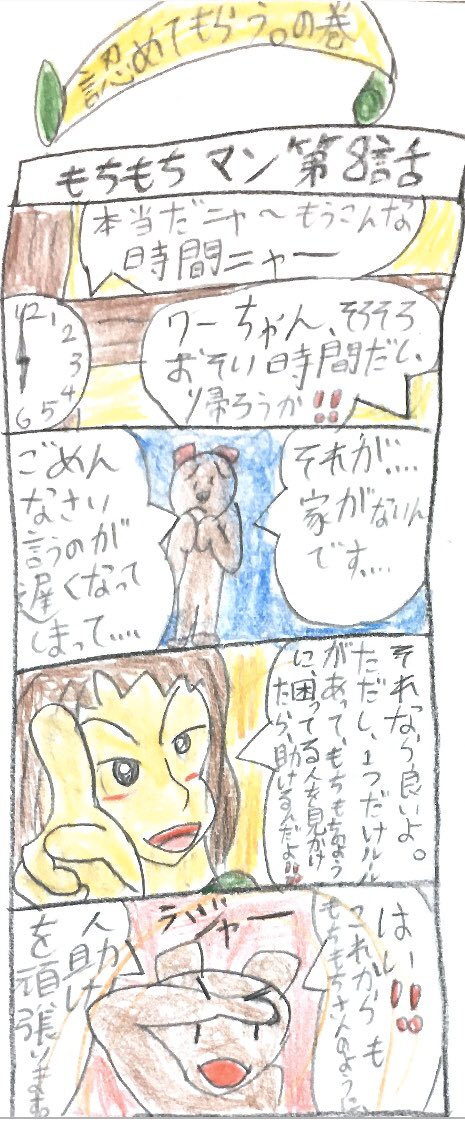 認めてもらう。の巻
もちもちマン第8話
本当だニャ〜もうこんな
時間ニャー
12
1
2
3
4
5
6
ワーちゃん、そろそろ
おそい時間だし、
帰ろうか!!
それが....
家がないん
です....
ごめん
なさい
言うのが
遅くなって
しまって....
それなら良いよ。
ただし、1つだけルール
があって、もちもちのよう
に、困ってる人を見かけ
たら、助けるんだよ!!
はい!!
これからも
もちもちさんのように
ラジャー
人助け
を頑張ります